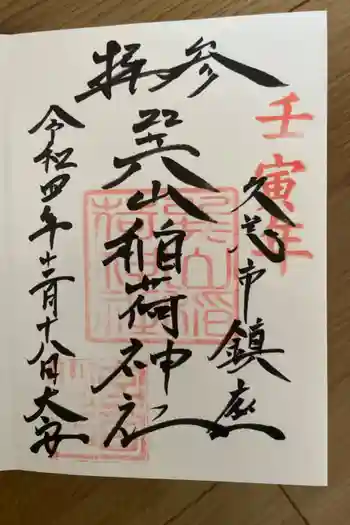 参拝
壬寅年
久慈市鎮座
巽山稲荷神社
巽山稲
荷神社
令和四年十二月十八日大安